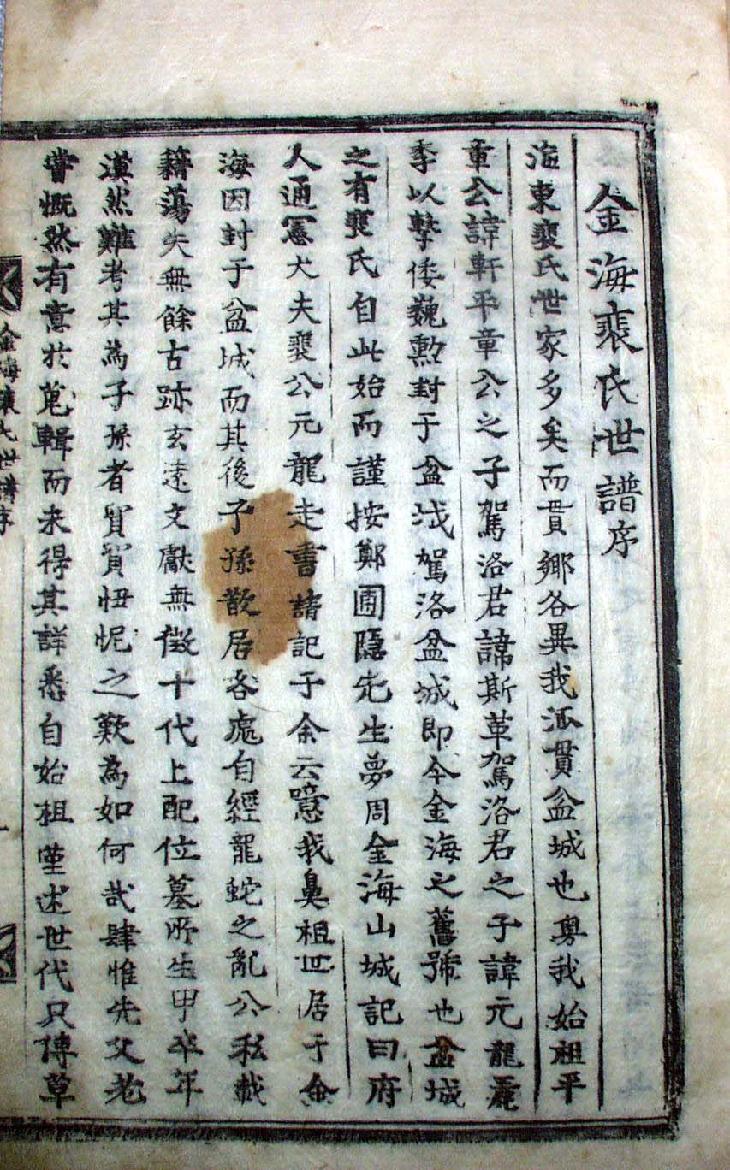 金海裵氏世譜序
海東裵氏世家多矣而貫鄉各異我派貫盆城也粤我始祖平
章公諱軒平章公之子駕洛君諱斯革駕洛君之子諱元龍麗
季以擊倭巍勳封于盆城駕洛盆城即今金海之舊號也盆城
之有裵氏自此始而謹按鄭圃隱先生夢周金海山城記曰府
人通憲大夫裵公元龍走書請記于余云噫我鼻祖世居于金
海因封于盆城而其後子孫散居各處自經龍蛇之亂公私載
籍蕩失無餘古跡玄遠文獻無徵十代上配位墓所生甲卒年
漠然難考其為子孫者貿貿忸怩之歎為如何哉肆惟先父老
嘗慨然有意於蒐輯而未得其詳悉自始祖堇述世代只傳草
金海裵氏世譜序